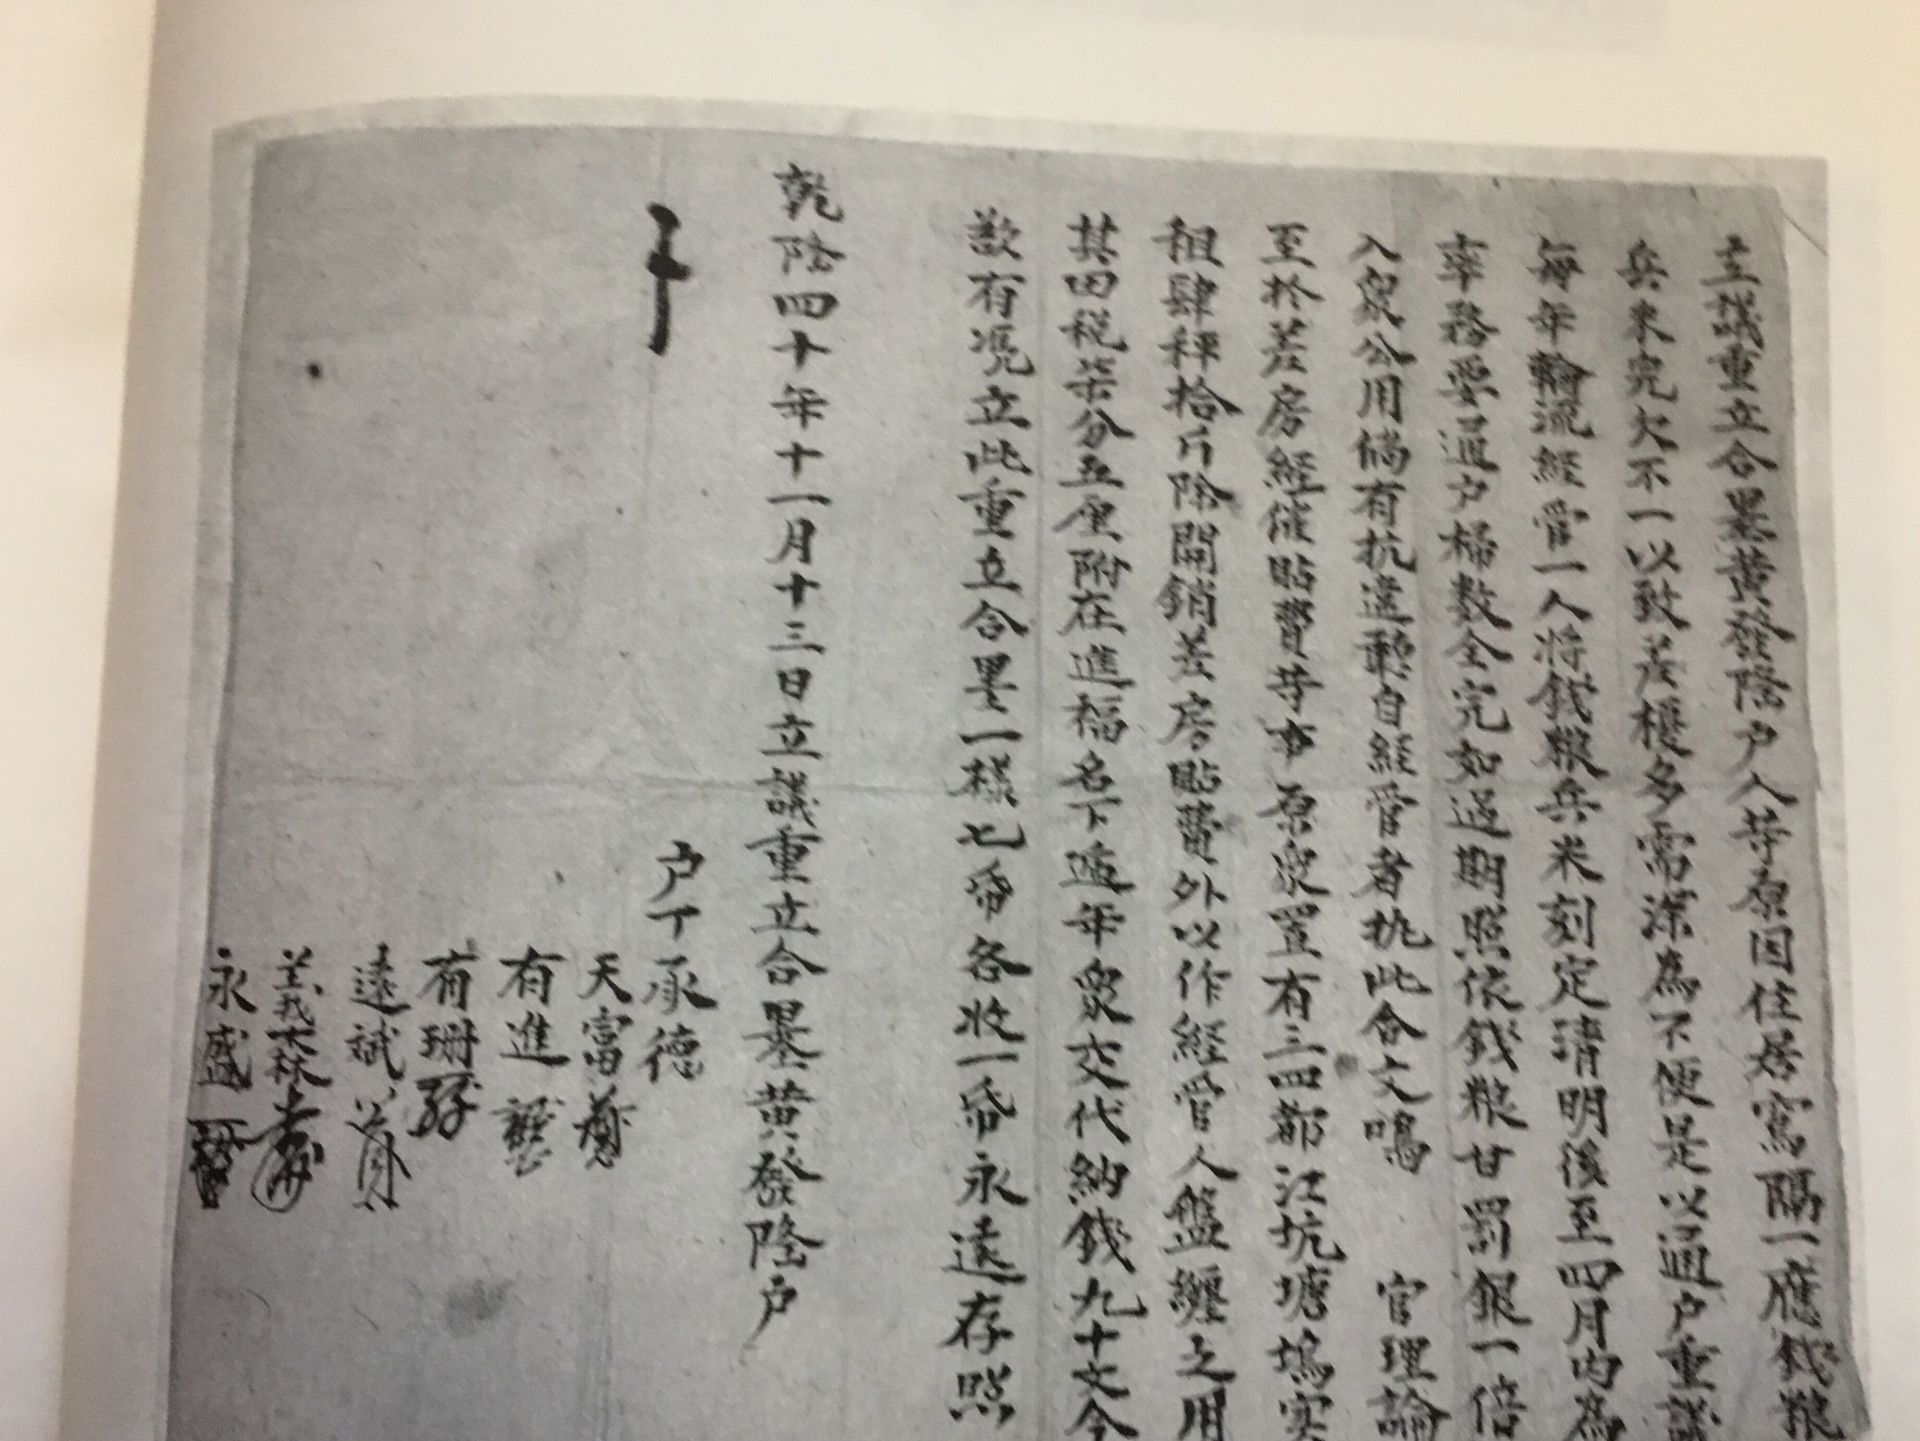 立議重立合墨黄發隆户人等原因住居寫隔一應錢粮
兵米完欠不一以致差擾多需深為不便是以通户重議
每年輪流經管一人将錢粮兵米刻定清明後至四月内為
率務要通户櫛數全完如過期照依錢粮甘罰銀一倍
入衆公用倘有抗違聽自經管者执此合文鳴 官理論
至於差房經催貼費等事原衆置有三四都江坑塘塢实
租肆秤拾斤除開銷差房貼費外以作經管人盤纏之用
其田税柒分五厘附在進福名下遞年衆交代納錢九十文今
欲有凭立此重立合墨一樣七帋各收一帋永遠存照
乾隆四十年十一月十三日立議重立合墨黄發隆户
户丁承德
天富
有進
有珊
遠斌
義大林
永盛